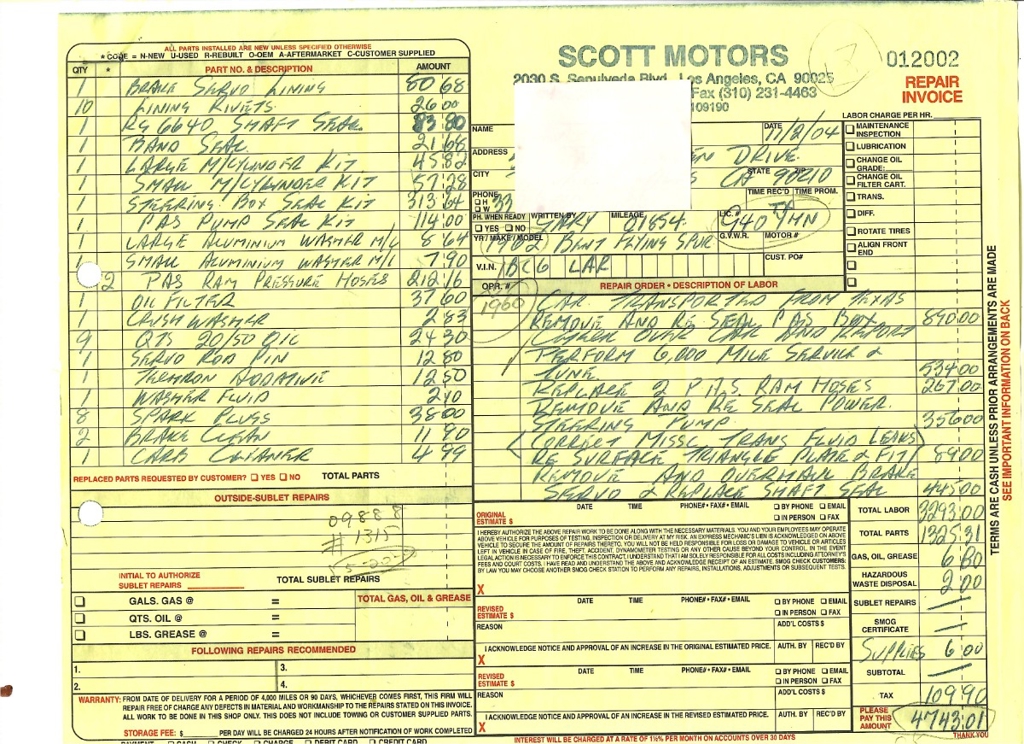 ALL PARTS INSTALLED ARE NEW UNLESS SPECIFIED OTHERWISE
* CODE = N-NEW U-USED R-REBUILT O-OEM A-AFTERMARKET C-CUSTOMER SUPPLIED
QTY * PART NO. & DESCRIPTION AMOUNT
1 BRAKE SERVO LINING 80 68
10 LINING RIVETS 26 00
1 RG 6640 SHAFT SEAL 83 80
1 BAND SEAL 21 68
1 LARGE M/CYLINDER KIT 45 82
1 SMALL M/CYLINDER KIT 57 28
1 STEERING BOX SEAL KIT 313 64
1 PAS PUMP SEAL KIT 114 00
1 LARGE ALUMINIUM WASHER M/C 8 64
1 SMALL ALUMINIUM WASHER M/C 7 90
2 PAS RAM PRESSURE HOSES 212 16
1 OIL FILTER 37 60
1 CRUSH WASHER 2 83
9 QTS 20/50 OIL 24 30
1 SERVO ROD PIN 12 80
1 ADDITIVE 12 50
1 WASHER FLUID 2 10
8 SPARK PLUGS 38 00
2 BRAKE CLEAN 11 90
1 CARB CLEANER 4 99
REPLACED PARTS REQUESTED BY CUSTOMER? YES NO TOTAL PARTS
OUTSIDE-SUBLET REPAIRS
09888
# 1315
INITIAL TO AUTHORIZE
SUBLET REPAIRS
TOTAL SUBLET REPAIRS
GALS. GAS @ = TOTAL GAS, OIL & GREASE
QTS. OIL @ =
LBS. GREASE @ =
FOLLOWING REPAIRS RECOMMENDED
1. 3.
2. 4.
WARRANTY: FROM DATE OF DELIVERY FOR A PERIOD OF 4,000 MILES OR 90 DAYS, WHICHEVER COMES FIRST, THIS FIRM WILL
REPAIR FREE OF CHARGE ANY DEFECTS IN MATERIAL AND WORKMANSHIP TO THE REPAIRS STATED ON THIS INVOICE.
ALL WORK TO BE DONE IN THIS SHOP ONLY. THIS DOES NOT INCLUDE TOWING OR CUSTOMER SUPPLIED PARTS.
STORAGE FEE: $ PER DAY WILL BE CHARGED 24 HOURS AFTER NOTIFICATION OF WORK COMPLETED
PAYMENT CASH CHECK CHARGE DEBIT CARD CREDIT CARD
SCOTT MOTORS
2030 S. Sepulveda Blvd. Los Angeles, CA 90025
Fax (310) 231-4463
109190
012002
REPAIR
INVOICE
LABOR CHARGE PER HR.
NAME DATE 11/2/04
ADDRESS DRIVE
CITY STATE CA ZIP 90210
PHONE H W 33 TIME REC'D TIME PROM.
PH. WHEN READY YES NO WRITTEN BY GARY MILEAGE 01854 LIC. # G40 YHN TX
YR/MAKE/MODEL 1962 BENT FLYING SPUR G.V.W.R. MOTOR #
V.I.N. BC6 LAR CUST. PO#
MAINTENANCE INSPECTION
LUBRICATION
CHANGE OIL GRADE:
CHANGE OIL FILTER CART.
TRANS.
DIFF.
ROTATE TIRES
ALIGN FRONT END
OPR. # REPAIR ORDER • DESCRIPTION OF LABOR
1960 CAR TRANSPORTED FROM TEXAS
REMOVE AND RE SEAL PAS BOX 890.00
CHECK OVER CAR AND REPORT
PERFORM 6,000 MILE SERVICE &
TUNE. 534 00
REPLACE 2 P.A.S RAM HOSES 267.00
REMOVE AND RE SEAL POWER
STEERING PUMP. 356 00
(CORRECT MISSC TRANS FLUID LEAKS)
RE SURFACE TRIANGLE PLATE & FIT 89 00
REMOVE AND OVERHAUL BRAKE
SERVO & REPLACE SHAFT SEAL 445 00
ORIGINAL ESTIMATE $ DATE TIME PHONE# • FAX# • EMAIL BY PHONE EMAIL IN PERSON FAX
I HEREBY AUTHORIZE THE ABOVE REPAIR WORK TO BE DONE ALONG WITH THE NECESSARY MATERIALS. YOU AND YOUR EMPLOYEES MAY OPERATE
ABOVE VEHICLE FOR PURPOSES OF TESTING, INSPECTION OR DELIVERY AT MY RISK. AN EXPRESS MECHANIC'S LIEN IS ACKNOWLEDGED ON ABOVE
VEHICLE TO SECURE THE AMOUNT OF REPAIRS THERETO. YOU WILL NOT BE HELD RESPONSIBLE FOR LOSS OR DAMAGE TO VEHICLE OR ARTICLES
LEFT IN VEHICLE IN CASE OF FIRE, THEFT, ACCIDENT, DYNAMOMETER TESTING OR ANY OTHER CAUSE BEYOND YOUR CONTROL.
X
REVISED ESTIMATE $ DATE TIME PHONE# • FAX# • EMAIL BY PHONE EMAIL IN PERSON FAX
REASON ADD'L COSTS $
X I ACKNOWLEDGE NOTICE AND APPROVAL OF AN INCREASE IN THE ORIGINAL ESTIMATED PRICE. AUTH. BY REC'D BY
REVISED ESTIMATE $ DATE TIME PHONE# • FAX# • EMAIL BY PHONE EMAIL IN PERSON FAX
REASON ADD'L COSTS $
X I ACKNOWLEDGE NOTICE AND APPROVAL OF AN INCREASE IN THE REVISED ESTIMATED PRICE. AUTH. BY REC'D BY
INTEREST WILL BE CHARGED AT A RATE OF 1½% PER MONTH ON ACCOUNTS OVER 30 DAYS
TOTAL LABOR 3293.00
TOTAL PARTS 1325.31
GAS, OIL, GREASE 6 80
HAZARDOUS WASTE DISPOSAL 2 00
SUBLET REPAIRS —
SMOG CERTIFICATE —
SUPPLIES 6 00
SUBTOTAL —
TAX 109.90
PLEASE PAY THIS AMOUNT 4743.01
THANK YOU
TERMS ARE CASH UNLESS PRIOR ARRANGEMENTS ARE MADE
SEE IMPORTANT INFORMATION ON BACK